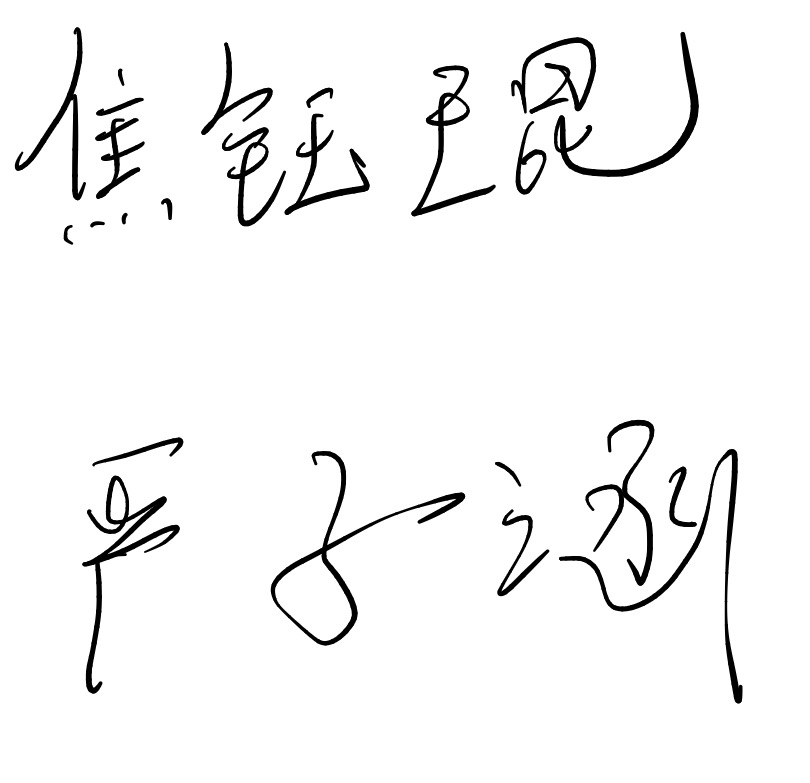 焦钰琨
严子涵